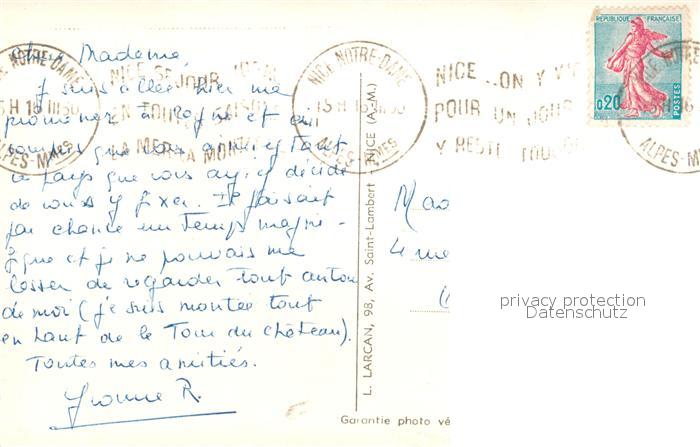 Chère Madame,
Je suis allée hier me
promener à et ai
compris que vous aimiez tant
ce pays que vous ayiez décidé
de vous y fixer. Il faisait
par chance un temps magni-
fique et je ne pouvais me
lasser de regarder tout autour
de moi (je suis montée tout
en haut de la Tour du château).
Toutes mes amitiés.
Yvonne R.
NICE NOTRE-DAME
15H 16 III
ALPES-MMES
NICE SEJOUR IDEAL
EN TOUTE SAISON
LA MER LA MONT
NICE NOTRE-DAME
15H 16 III
ALPES-MMES
NICE ..ON Y V
POUR UN JOUR
Y RESTE TOUJO
REPUBLIQUE FRANÇAISE
0,20
POSTES
NICE NOTRE-DAME
15H
ALPES-MMES
L. LARCAN, 98, Av. Saint-Lambert - NICE (A.-M.)
Mad
4 rue
privacy protection
Datenschutz
Garantie photo vé